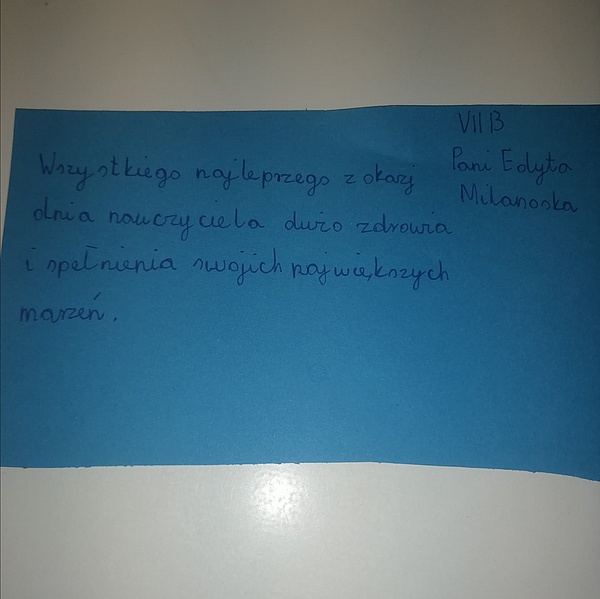 VII B
Pani Edyta
Milanoska
Wszystkiego najleprzego z okazj
dnia nauczyciela dużo zdrowia
i spełnienia swojich największych
marzeń.